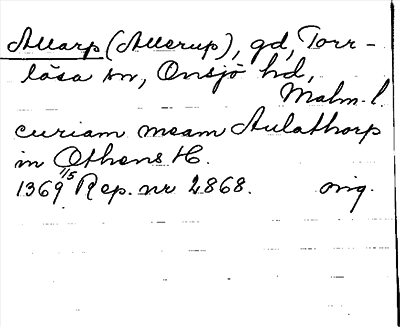 Allarp (Allerup), gd, Torr-
lösa sn, Onsjö hd,
Malm. l.
curiam meam Aulathorp
in Othens H.
1369 1/5 Rep. nr 2868. orig.